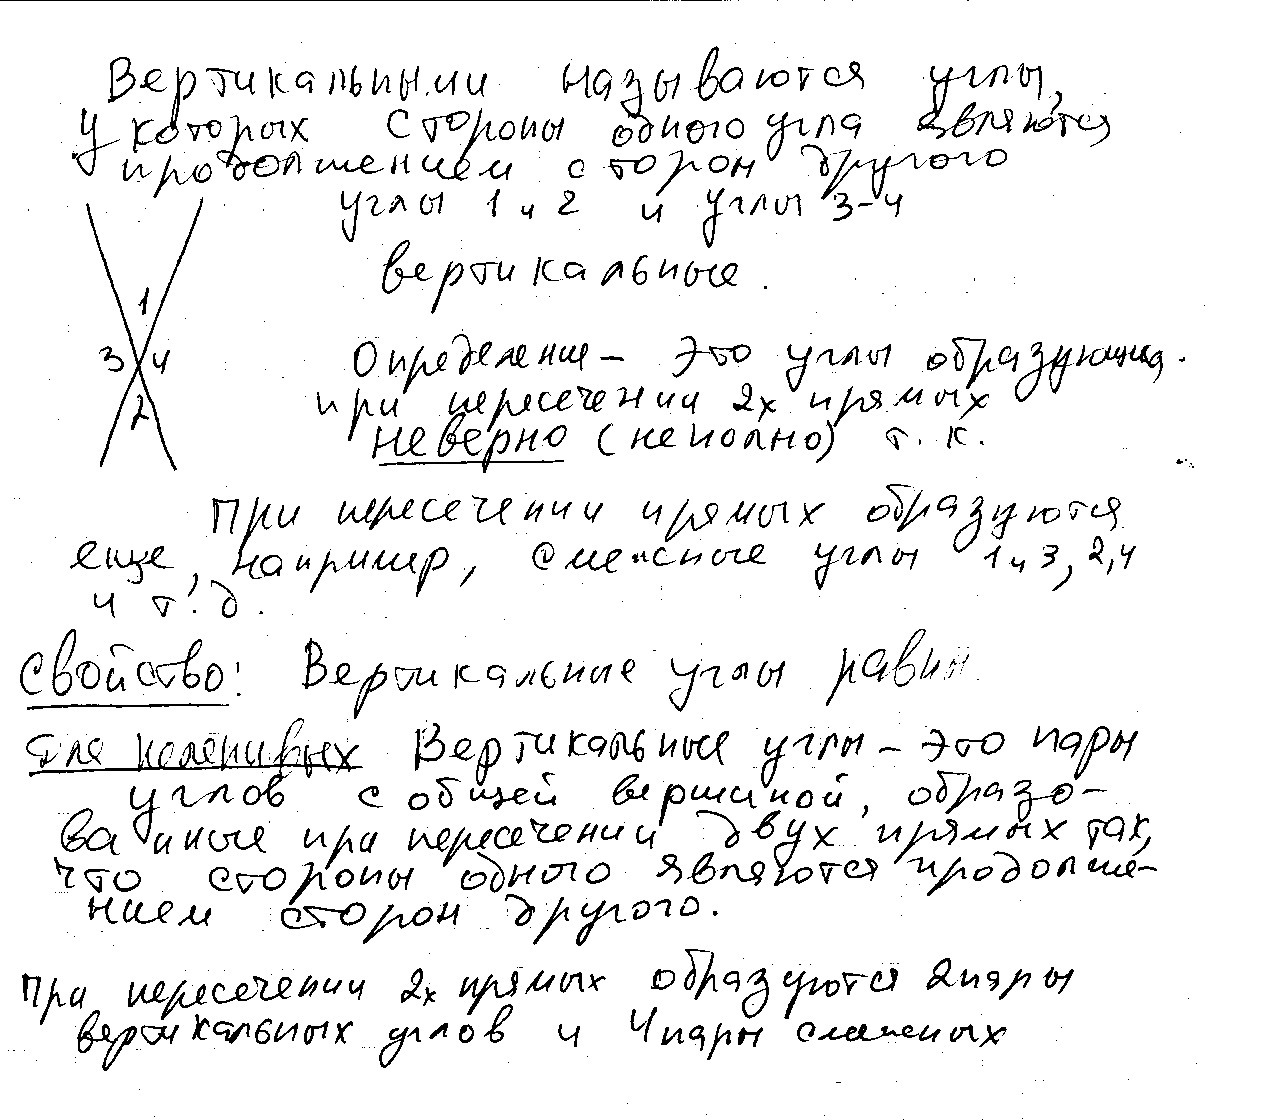 Вертикальными называются углы,
у которых стороны одного угла являются
продолжением сторон другого
углы 1 и 2 и углы 3-4
вертикальные.
1
3 4
2
Определение – это углы образующиеся
при пересечении 2х прямых
неверно (неполно) т. к.
При пересечении прямых образуются
еще, например, смежные углы 1 и 3, 2,4
и т. д.
Свойство: Вертикальные углы равны
Для Вертикальные углы – это пары
углов с общей вершиной, образо-
ванные при пересечении двух прямых так,
что стороны одного являются продолже-
нием сторон другого.
При пересечении 2х прямых образуются 2 пары
вертикальных углов и 4 пары смежных